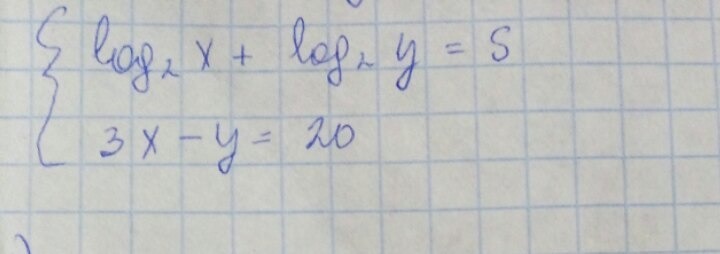 log₂ x + log₂ y = 5
3x - y = 20